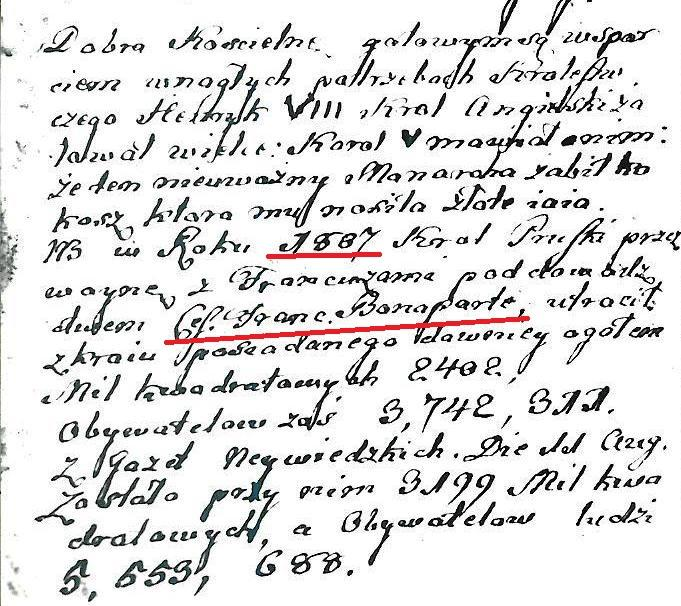 Dobra Kościelne gotowym są wspar
ciem w nagłych potrzebach Królestw
czego Henryk VIII Krol Angielski ża
łował wielce: Karol V mawiał o nim:
że ten nieuważny Monarcha zabił ko
kosz ktora mu nosiła złote iaia.
NB w Roku 1807 Krol Pruski przez
woynę z Francuzami pod dowódz
dwem Ces. Franc. Bonaparte, utracił
z kraiu posiadanego dawniey ogółem
Mil kwadratowych 2402,
Obywatelow zaś 3,742,311.
z Gazet Neywiedzkich. Die 11 Aug.
Zostało przy nim 3199 Mil kwa
dratowych, a Obywatelow ludzi
5, 553, 688.